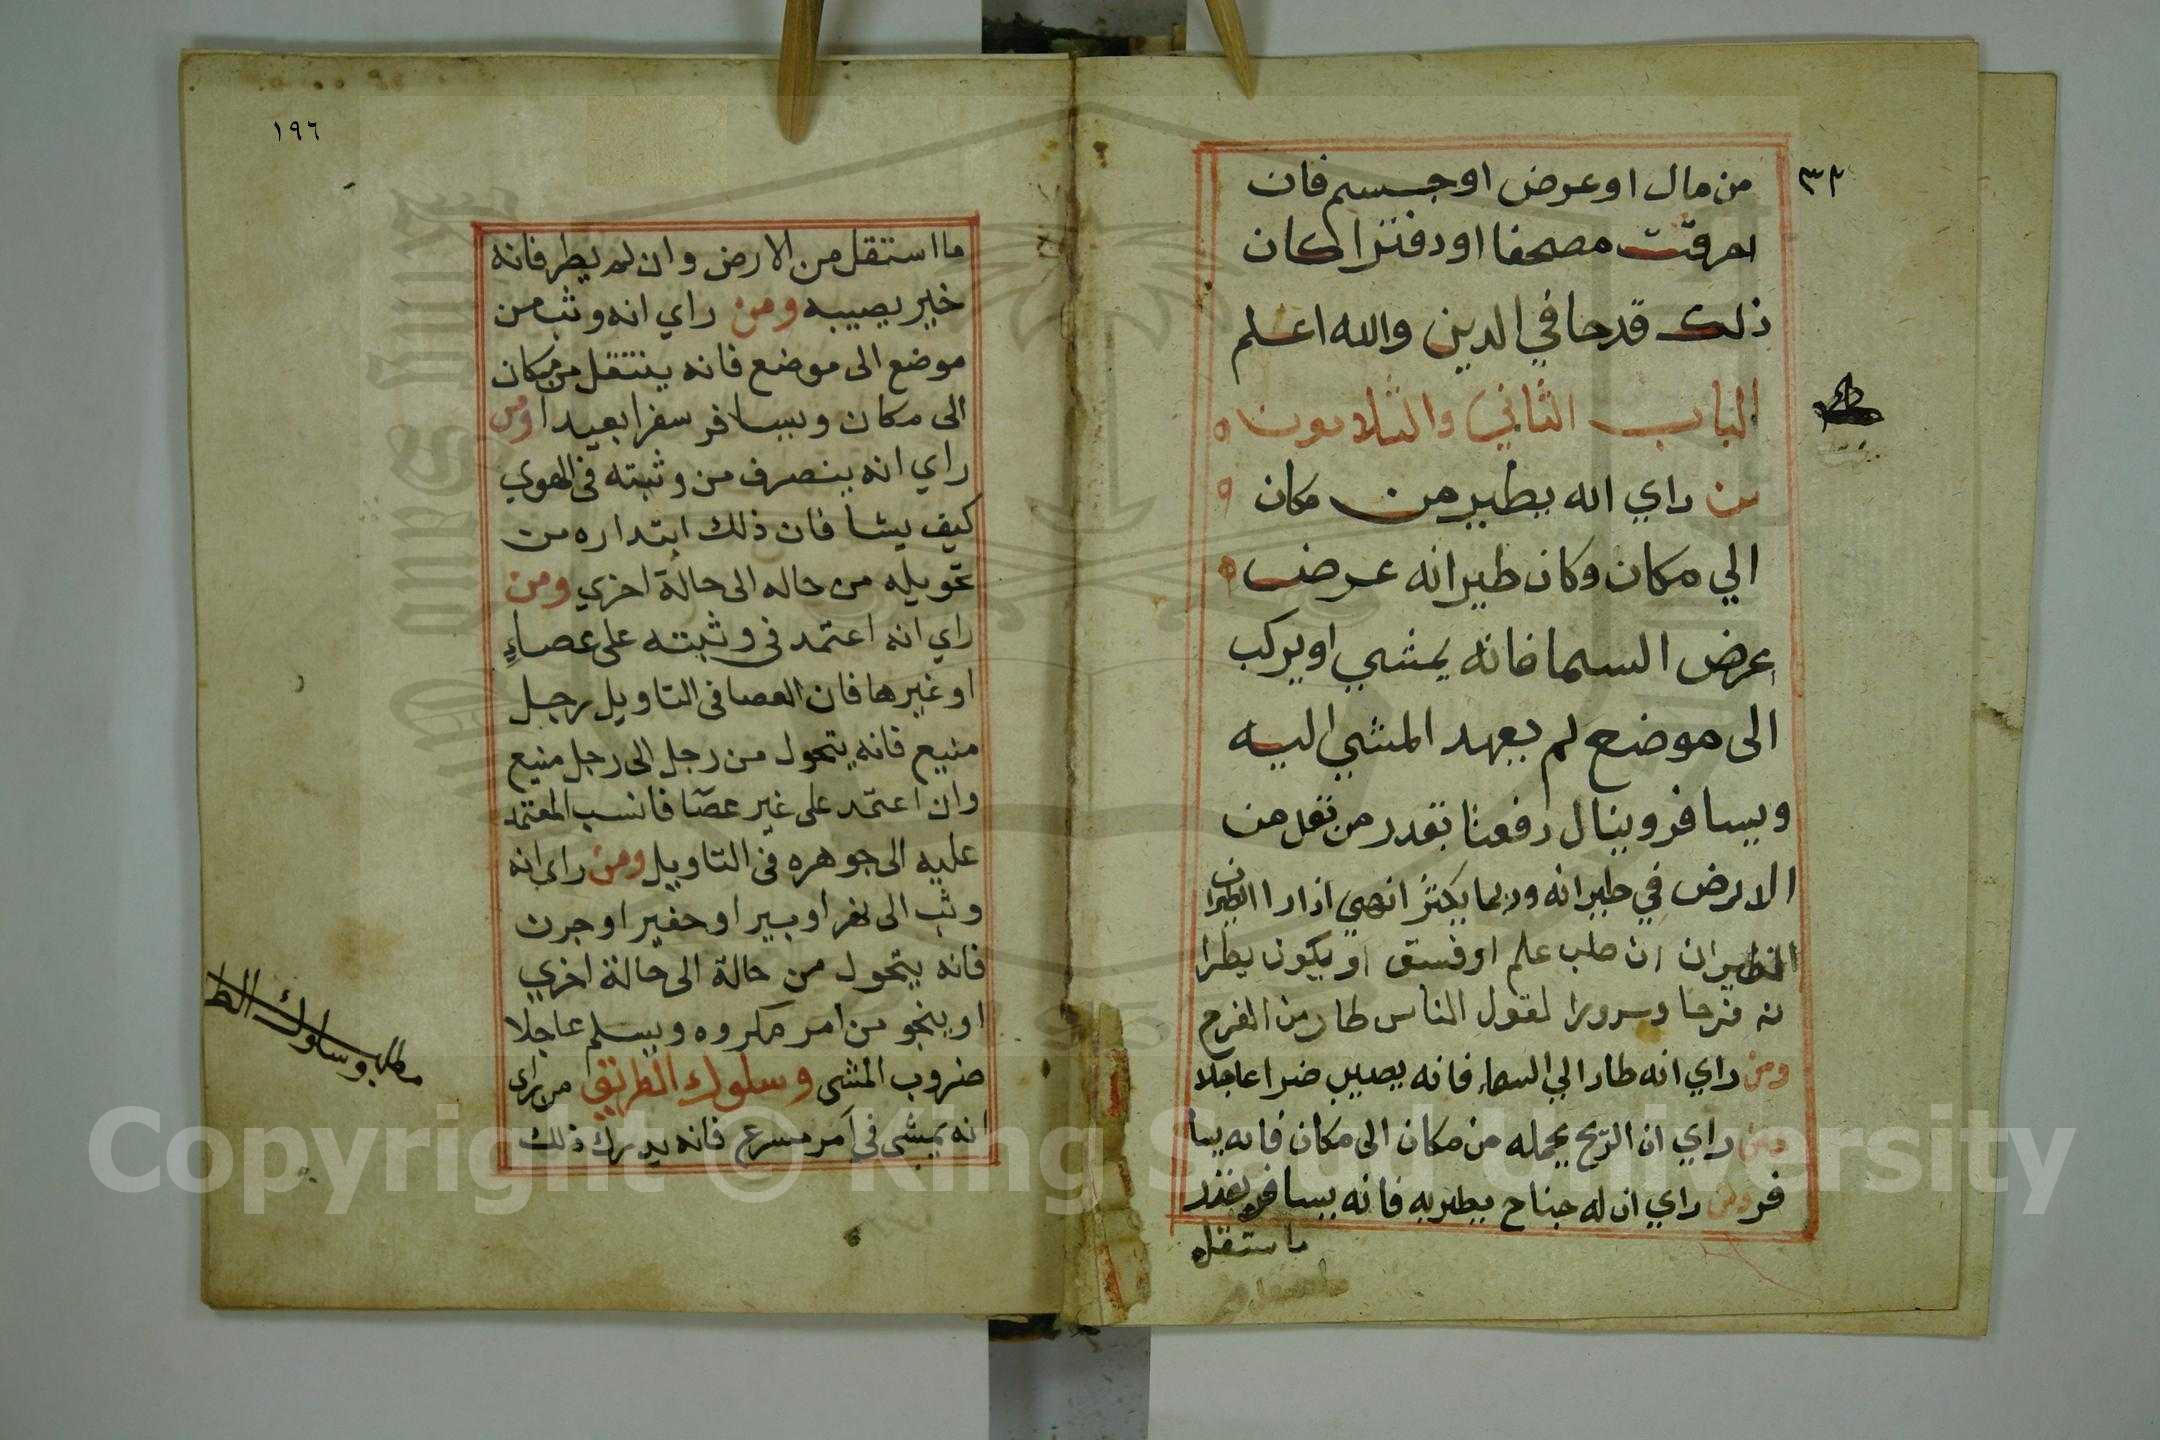 ٣٢
من مال او عرض او جسم فان
احرقت مصحفا او دفترا كان
ذلك قدحا في الدين والله اعلم
الباب الثاني والثلاثون
من راي انه يطير من مكان
الي مكان وكان طيرانه عرض
عرض السما فانه يمشي او يركب
الى موضع لم يعهد المشي اليه
ويسافر وينال رفعتا بقدر من
الارض في طيرانه وربما يكثر اذا را الطيران
الطيران ان طلب علم او فسق او يكون يطرا
نه فرحا وسرورا لقول الناس طار من الفرح
ومن راي انه طار الي السماء فانه يصيب ضرا عاجلا
ومن راي ان الريح يحمله من مكان الى مكان فانه يسا
فر ومن راي ان له جناح يطير به فانه يسافر بقدر
ما ستقل
١٩٦
ما استقل من الارض وان لم يطر فانه
خير يصيبه ومن راي انه وثب من
موضع الى موضع فانه ينتقل من مكان
الى مكان ويسافر سفرا بعيدا ومن
راي انه ينصرف من وثبته في الهوي
كيف يشا فان ذلك ابتداره من
تحويله من حاله الى حالة اخري ومن
راي انه اعتمد في وثبته على عصاء
او غيرها فان العصا في التاويل رجل
منيع فانه يتحول من رجل الى رجل منيع
وان اعتمد على غير عصا فانسب المعتمد
عليه الى جوهره في التاويل ومن راى انه
وثب الى نهر او بير او حفير او جرن
فانه يتحول من حالة الى حالة اخري
او ينجو من امر مكروه ويسلم عاجلا
ضروب المشى وسلوك الطريق من راى
انه يمشى في امر مسرع فانه يدرك ذلك
مطلب وسلوك الط
Copyright © King Saud University